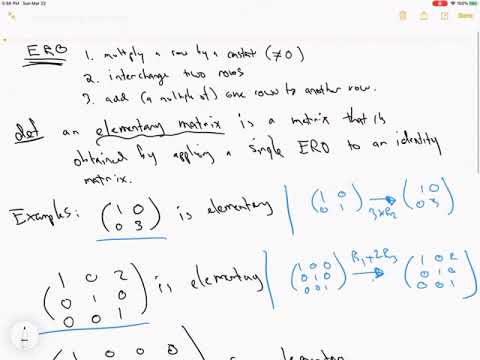 5:56 PM Sun Mar 22
Done
ERO 1. multiply a row by a constat (≠0)
2. interchange two rows
3. add (a multiple of) one row to another row.
def an elementary matrix is a matrix that is
obtained by applying a single ERO to an identity
matrix.
Examples: (1 0 is elementary | (1 0 → (1 0
0 3) 0 1) 3×R2 0 3)
(1 0 2 is elementary | (1 0 0 R1+2R3 → (1 0 2
0 1 0 0 1 0 0 1 0
0 0 1) 0 0 1) 0 0 1)
0 0 0